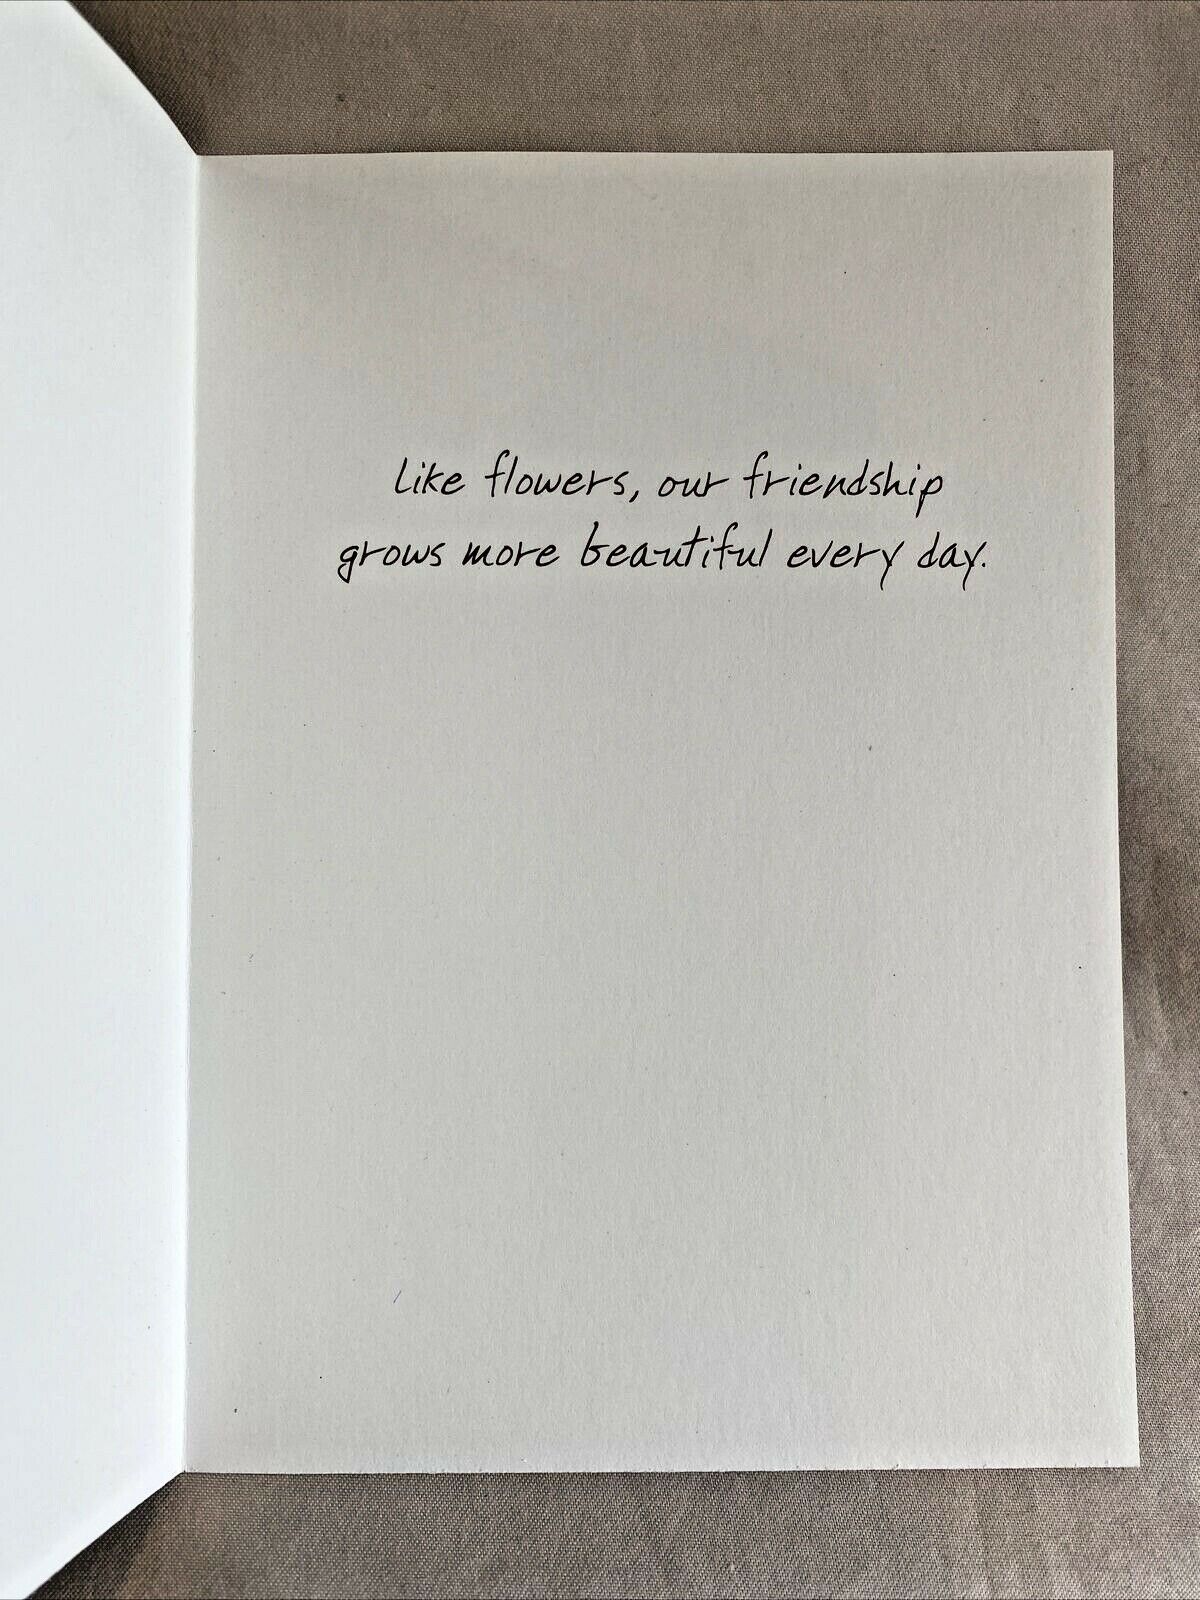 Like flowers, our friendship
grows more beautiful every day.